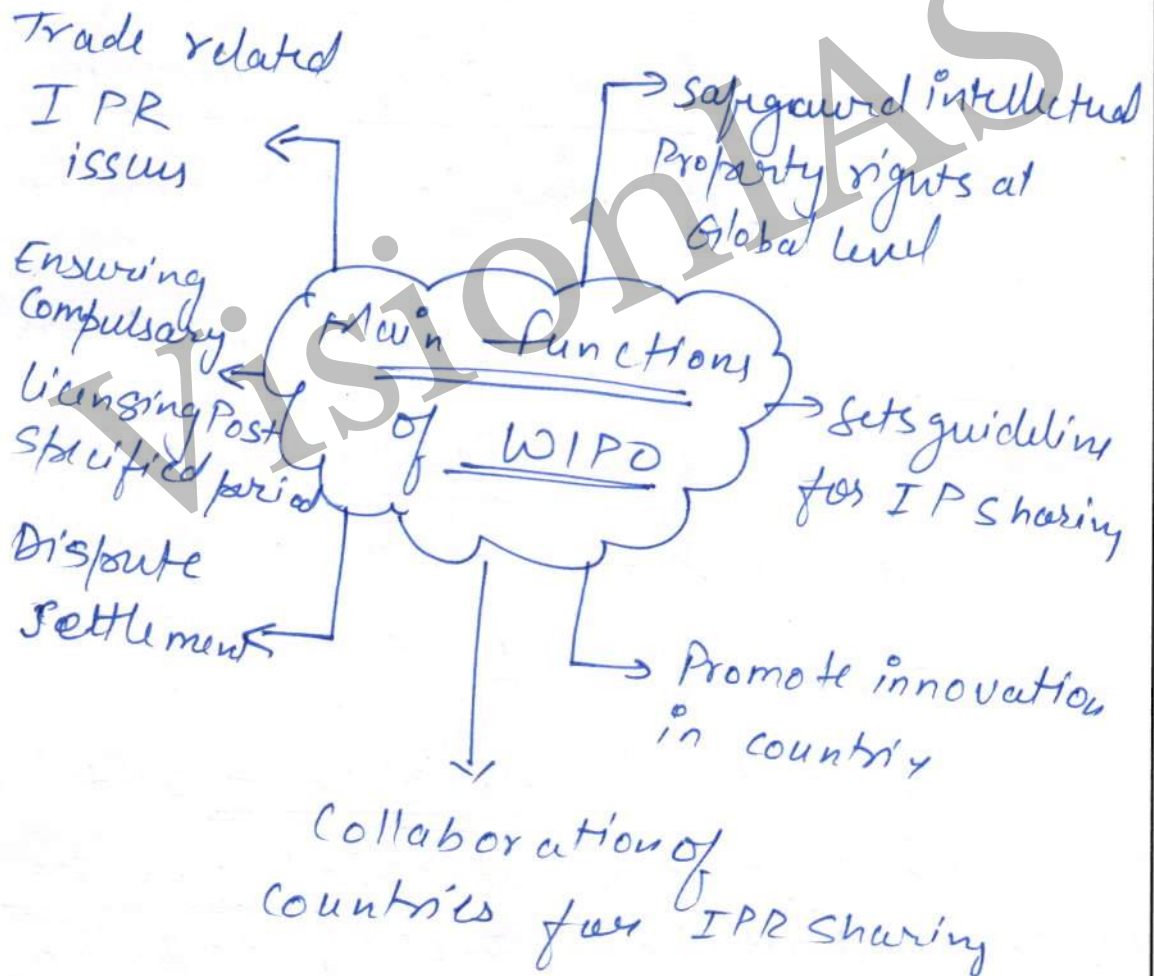 Trade related
IPR
issues
Safegaurd intellectual
Property rights at
Global level
Ensuring
Compulsary
Licensing Post
Specified period
Main functions
of WIPO
Sets guideline
for IP Sharing
Dispute
Settlement
Promote innovation
in country
Collaboration of
Countries for IPR Sharing
VisionIAS